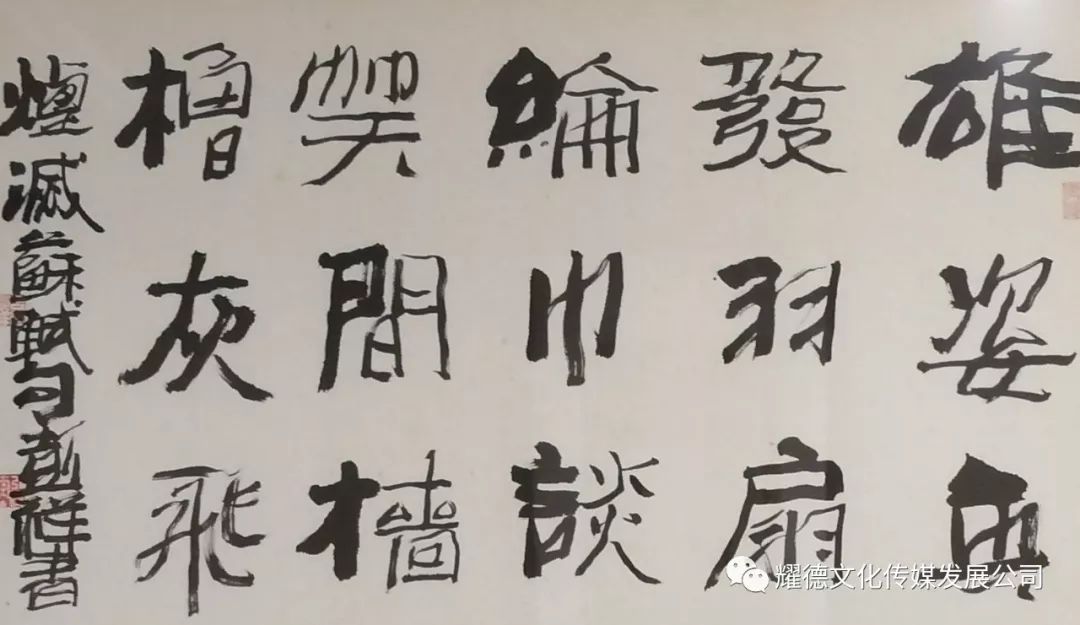 雄姿英
發羽扇
綸巾談
笑間檣
櫓灰飛
煙滅蘇軾句祥書
耀德文化传媒发展公司